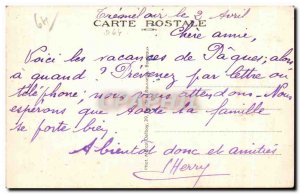 Tréméloir le 3 Avril
CARTE POSTALE
Chère amie,
Voici les vacances de Pâques; alors
a quand? Prévenez par lettre ou
téléphone, nous vous attendons. Nous
espérons que toute la famille
se porte bien,
A bientôt donc et amitiés
S Herry